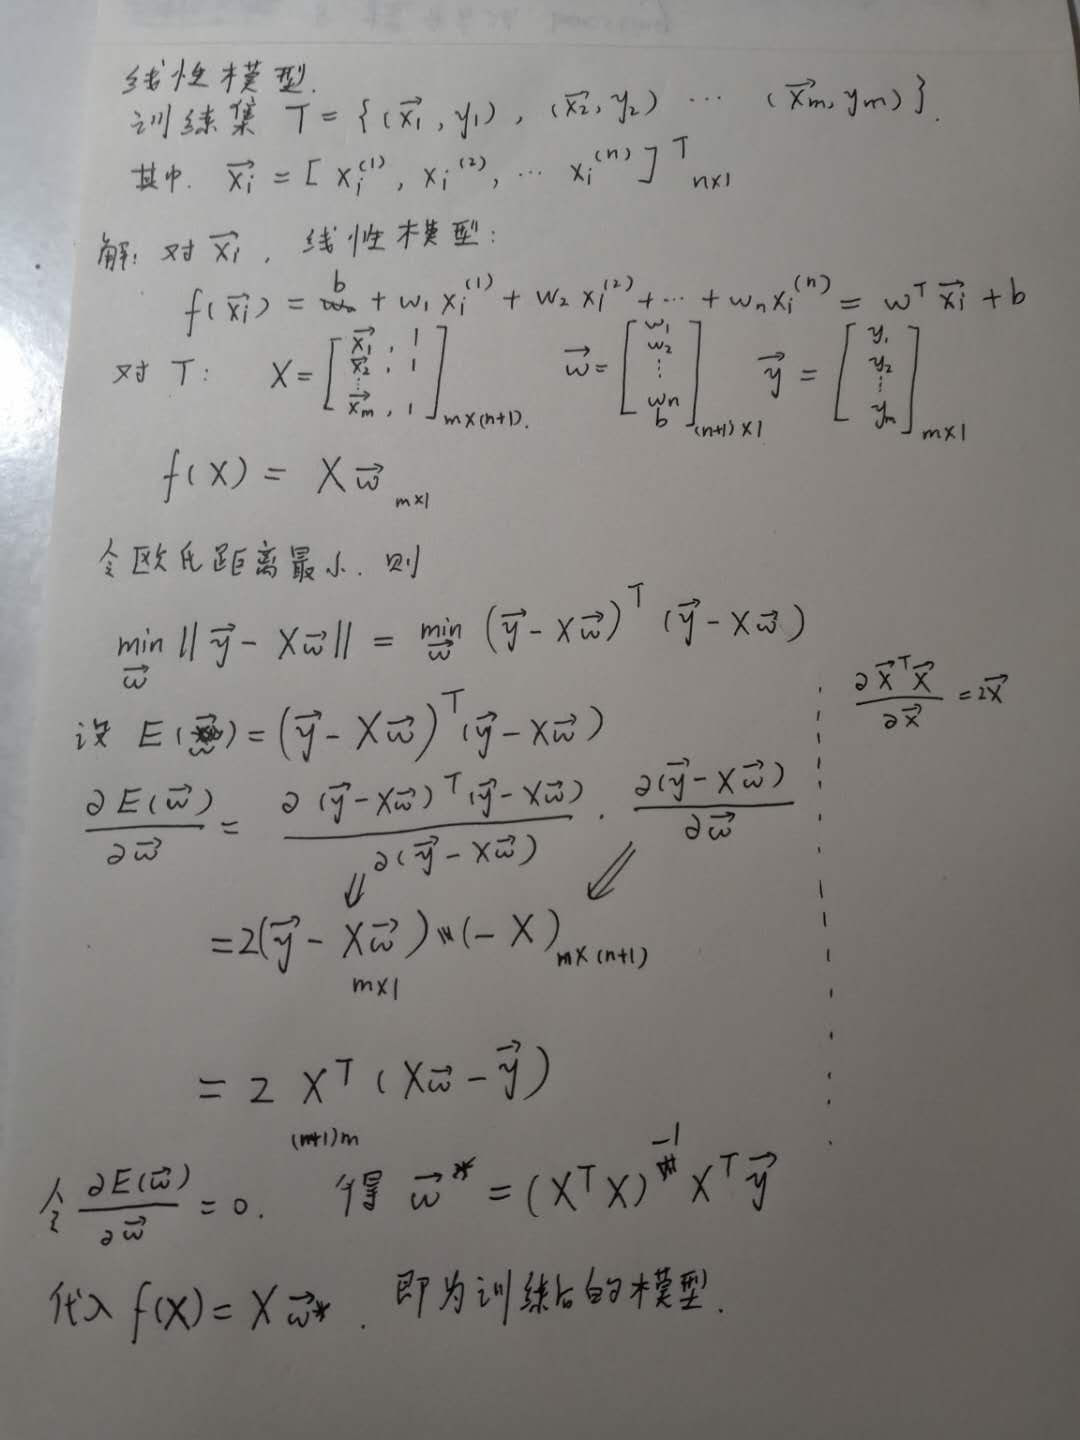 线性模型.
训练集 T = {(x⃗₁, y₁), (x⃗₂, y₂) ⋯ (x⃗m, ym)}.
其中. x⃗ᵢ = [xᵢ⁽¹⁾, xᵢ⁽²⁾, ⋯ xᵢ⁽ⁿ⁾]ᵀ n×1
解: 对 x⃗ᵢ, 线性模型:
f(x⃗ᵢ) = b + w₁xᵢ⁽¹⁾ + w₂xᵢ⁽²⁾ + ⋯ + wnxᵢ⁽ⁿ⁾ = wᵀx⃗ᵢ + b
对 T: X = [x⃗₁, 1; x⃗₂, 1; ⋮ x⃗m, 1] m×(n+1). w⃗ = [w₁ w₂ ⋮ wn b] (n+1)×1 y⃗ = [y₁ y₂ ⋮ ym] m×1
f(X) = Xw⃗ m×1
令欧氏距离最小. 则
min w⃗ ||y⃗ - Xw⃗|| = min w⃗ (y⃗ - Xw⃗)ᵀ(y⃗ - Xw⃗)
∂x⃗ᵀx⃗ / ∂x⃗ = 2x⃗
设 E(w⃗) = (y⃗ - Xw⃗)ᵀ(y⃗ - Xw⃗)
∂E(w⃗) / ∂w⃗ = ∂(y⃗ - Xw⃗)ᵀ(y⃗ - Xw⃗) / ∂(y⃗ - Xw⃗) · ∂(y⃗ - Xw⃗) / ∂w⃗
⇓ ⇓
= 2(y⃗ - Xw⃗) m×1 (-X) m×(n+1)
= 2Xᵀ(Xw⃗ - y⃗)
(n+1)m
令 ∂E(w⃗) / ∂w⃗ = 0. 得 w⃗* = (XᵀX)⁻¹Xᵀy⃗
代入 f(X) = Xw⃗*. 即为训练后的模型.